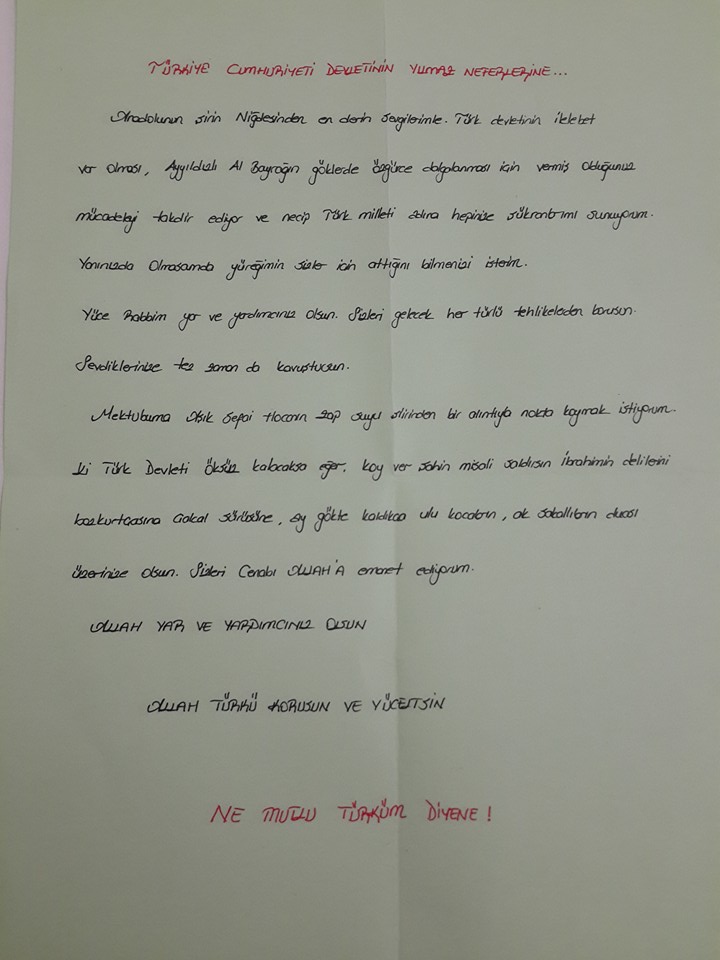 TÜRKİYE CUMHURİYETİ DEVLETİNİN YILMAZ NEFERLERİNE...
Anadolunun şirin Niğdesinden en derin sevgilerimle. Türk devletinin ilelebet
var olması, Ayyıldızlı Al Bayrağın göklerde özgürce dalgalanması için vermiş olduğunuz
mücadeleyi takdir ediyor ve necip Türk milleti adına hepinize şükranlarımı sunuyorum.
Yanınızda Olmasamda yüreğimin sizler için attığını bilmenizi isterim.
Yüce Rabbim yar ve yardımcınız olsun. Sizleri gelecek her türlü tehlikeleden korusun.
Sevdiklerinize tez zaman da kavuştursun.
Mektubuma Aşık Sefai Hocanın zap suyu şiirinden bir alıntıyla nokta koymak istiyorum.
Türk Devleti Öksüz kalacaksa eğer. Koy ver şahin misali saldırsın İbrahimin delilerini
bozkurtçasına Çakal sürüsüne, ay gökte kaldıkça ulu kocaların, ak sakallıların duası
üzerinize olsun. Sizleri Cenabı ALLAH'A emanet ediyorum.
ALLAH YAR VE YARDIMCINIZ OLSUN
ALLAH TÜRKÜ KORUSUN VE YÜCELTSİN
NE MUTLU TÜRKÜM DİYENE!